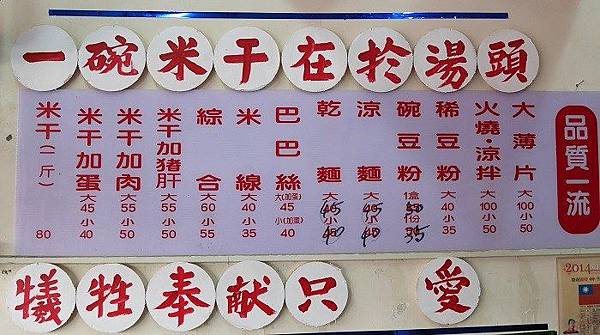 一碗米干在於湯頭
品質一流
大薄片 大100 小50
火燒·涼拌 大100 小50
稀豆粉 大40 小35
碗豆粉 1盒 1份 35
涼麵 大45 小40
乾麵 大45 小40
巴巴絲 大(加蛋)45 小(加蛋)40
米線 大40 小35
綜合 大60 小55
米干加猪肝 大55 小50
米干加肉 大55 小50
米干加蛋 大45 小40
米干(一斤) 80
犧牲奉献只 愛
2014